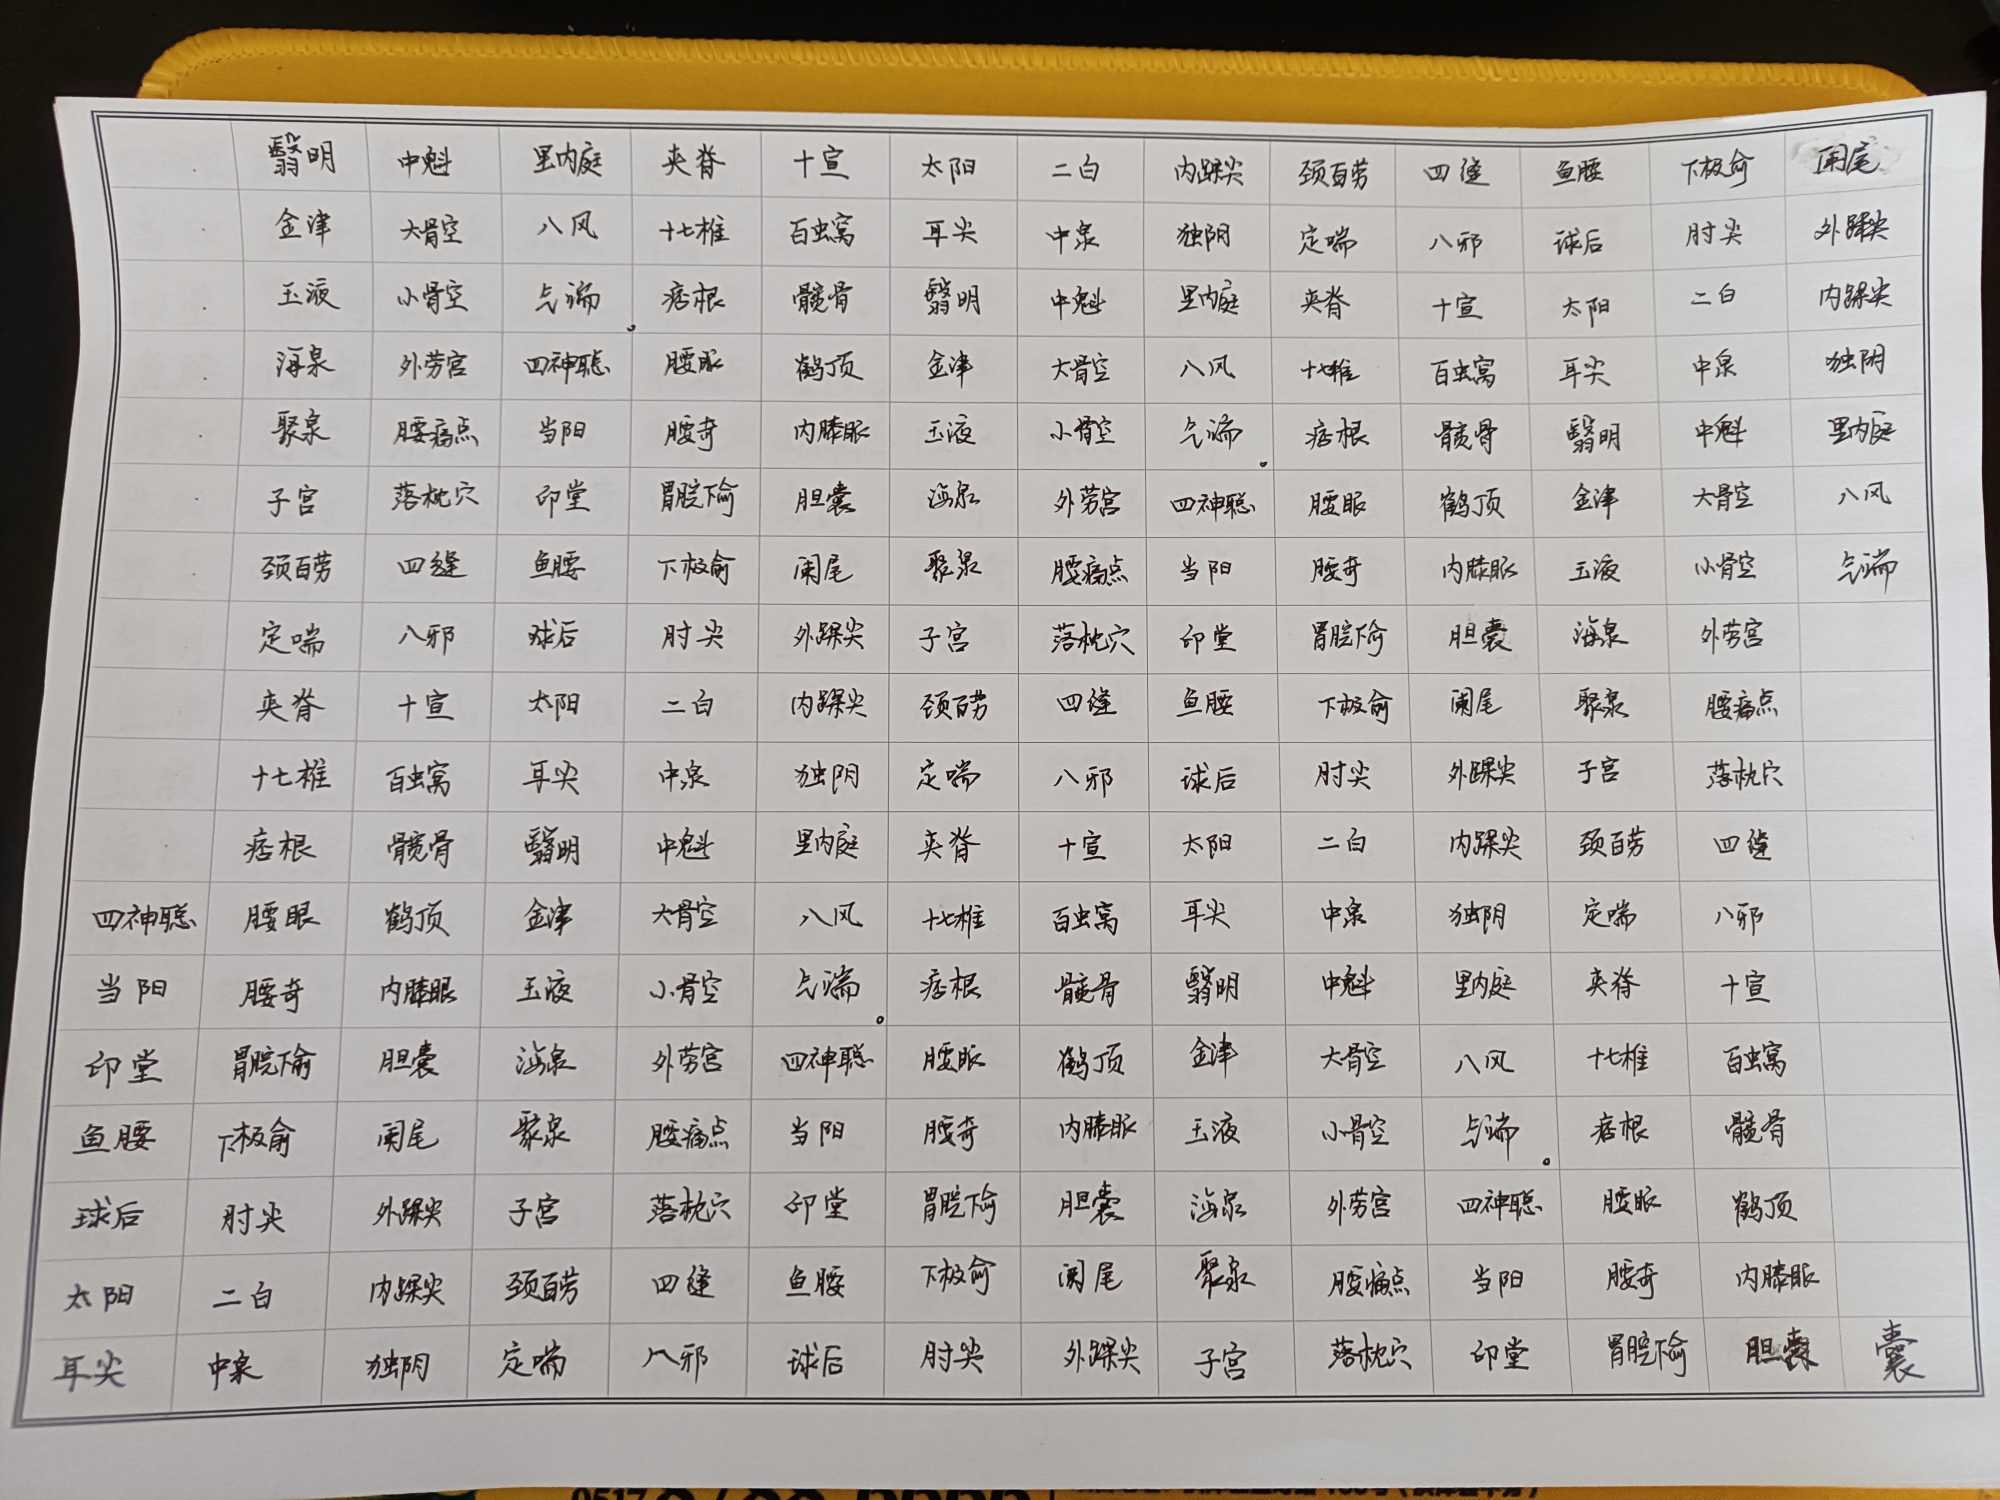 翳明 中魁 里内庭 夹脊 十宣 太阳 二白 内踝尖 颈百劳 四缝 鱼腰 下极俞 阑尾
金津 大骨空 八风 十七椎 百虫窝 耳尖 中泉 独阴 定喘 八邪 球后 肘尖 外踝尖
玉液 小骨空 气端。 痞根 髋骨 翳明 中魁 里内庭 夹脊 十宣 太阳 二白 内踝尖
海泉 外劳宫 四神聪 腰眼 鹤顶 金津 大骨空 八风 十七椎 百虫窝 耳尖 中泉 独阴
聚泉 腰痛点 当阳 腰奇 内膝眼 玉液 小骨空 气端。 痞根 髋骨 翳明 中魁 里内庭
子宫 落枕穴 印堂 胃脘下俞 胆囊 海泉 外劳宫 四神聪 腰眼 鹤顶 金津 大骨空 八风
颈百劳 四缝 鱼腰 下极俞 阑尾 聚泉 腰痛点 当阳 腰奇 内膝眼 玉液 小骨空 气端
定喘 八邪 球后 肘尖 外踝尖 子宫 落枕穴 印堂 胃脘下俞 胆囊 海泉 外劳宫
夹脊 十宣 太阳 二白 内踝尖 颈百劳 四缝 鱼腰 下极俞 阑尾 聚泉 腰痛点
十七椎 百虫窝 耳尖 中泉 独阴 定喘 八邪 球后 肘尖 外踝尖 子宫 落枕穴
痞根 髋骨 翳明 中魁 里内庭 夹脊 十宣 太阳 二白 内踝尖 颈百劳 四缝
四神聪 腰眼 鹤顶 金津 大骨空 八风 十七椎 百虫窝 耳尖 中泉 独阴 定喘 八邪
当阳 腰奇 内膝眼 玉液 小骨空 气端。 痞根 髋骨 翳明 中魁 里内庭 夹脊 十宣
印堂 胃脘下俞 胆囊 海泉 外劳宫 四神聪 腰眼 鹤顶 金津 大骨空 八风 十七椎 百虫窝
鱼腰 下极俞 阑尾 聚泉 腰痛点 当阳 腰奇 内膝眼 玉液 小骨空 气端。 痞根 髋骨
球后 肘尖 外踝尖 子宫 落枕穴 印堂 胃脘下俞 胆囊 海泉 外劳宫 四神聪 腰眼 鹤顶
太阳 二白 内踝尖 颈百劳 四缝 鱼腰 下极俞 阑尾 聚泉 腰痛点 当阳 腰奇 内膝眼
耳尖 中泉 独阴 定喘 八邪 球后 肘尖 外踝尖 子宫 落枕穴 印堂 胃脘下俞 胆囊 囊